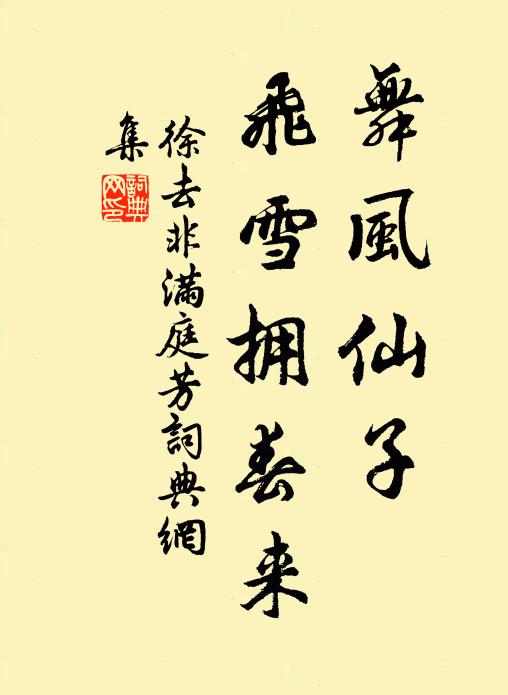 舞風仙子
飛雪拥春来
徐去非满庭芳詞典網
集
詞典
网印